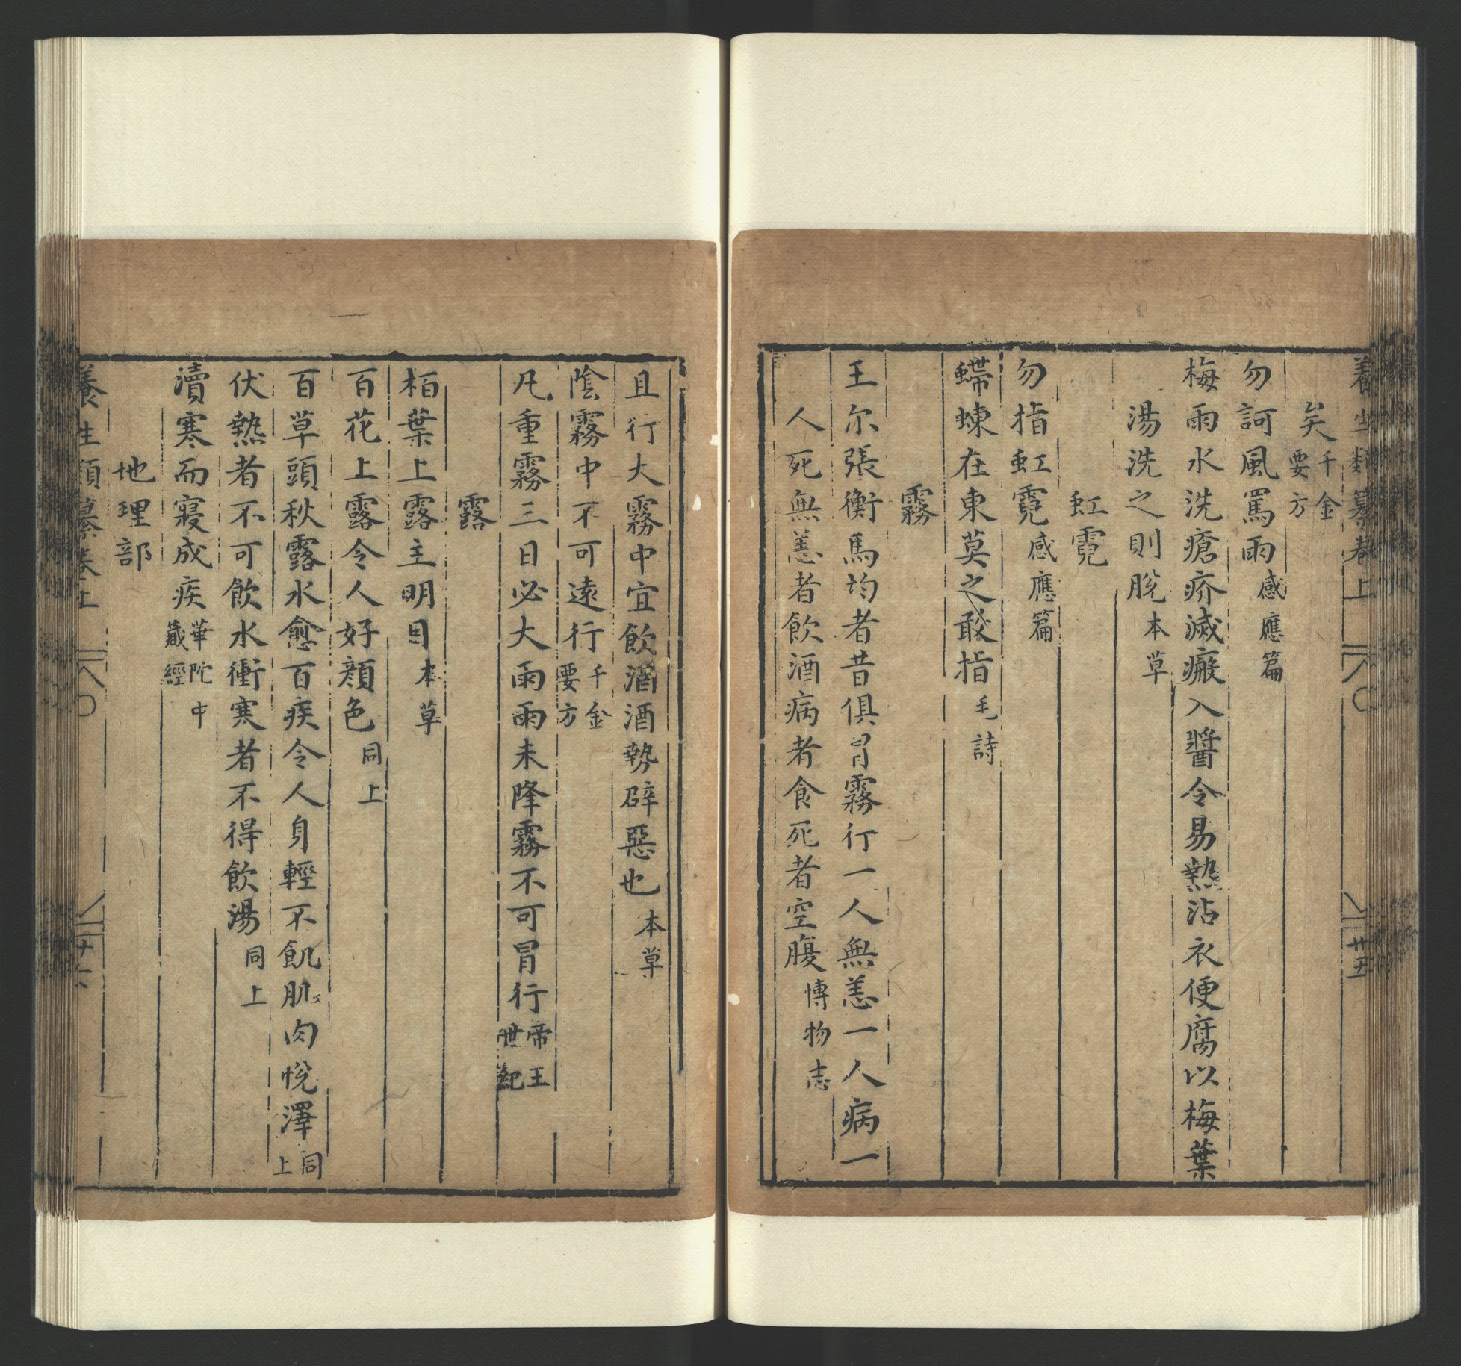 養生類纂卷上 卅五
矣千金要方
勿訶風罵雨感應篇
梅雨水洗瘡疥滅癜入醬令易熟沾衣便腐以梅葉
湯洗之則脫本草
虹霓
勿指虹霓感應篇
蝃蝀在東莫之敢指毛詩
霧
王尔張衡馬均者昔俱冒霧行一人無恙一人病一
人死無恙者飲酒病者食死者空腹博物志
且行大霧中宜飲酒酒勢辟惡也本草
陰霧中不可遠行千金要方
凡重霧三日必大雨雨未降霧不可冒行帝王世紀
露
栢葉上露主明目本草
百花上露令人好顔色同上
百草頭秋露水愈百疾令人身輕不飢肌肉悅澤同上
伏熱者不可飲水衝寒者不得飲湯同上
瀆寒而寢成疾華陀中藏經
地理部
養生類纂卷上